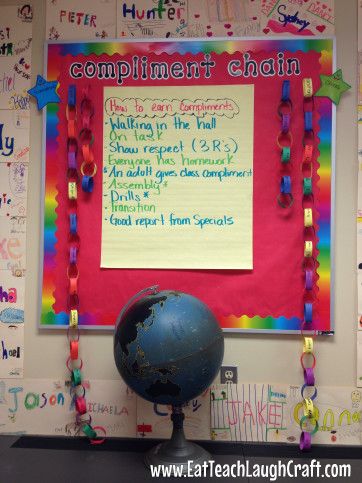 PETER
Hunter
Sydney
compliment chain
How to earn compliments
· Walking in the hall
· On task
· Show respect (3 R's)
· Everyone has homework
· An adult gives class compliment
· Assembly *
· Drills *
· Transition
· Good report from Specials
Jason
MICHAELA
JAKE
www.EatTeachLaughCraft.com